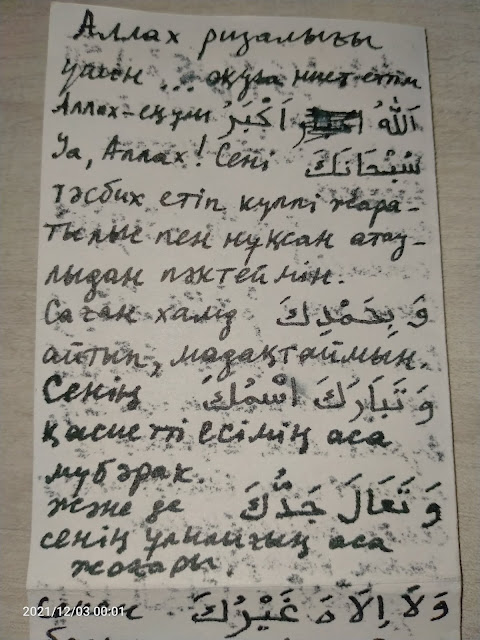 Аллах ризалығы
үшін ... оқуға ниет еттім
Аллах-ең ұлы اَللّٰهُ اَكْبَرُ
Уа, Аллах! Сені سُبْحَانَكَ
тәсбих етіп күллі жара-
тылыс пен нұқсан атау-
лыдан пәктеймін.
Саған хамд وَ بِحَمْدِكَ
айтып, мадақтаймын.
Сенің وَ تَبَارَكَ اسْمُكَ
қасиетті есімің аса
мубәрак.
және де وَ تَعَالَ جَدُّكَ
сенің ұлылығың аса
жоғары.
وَلَا اِلَاهَ غَيْرُكَ
2021/12/03 00:01